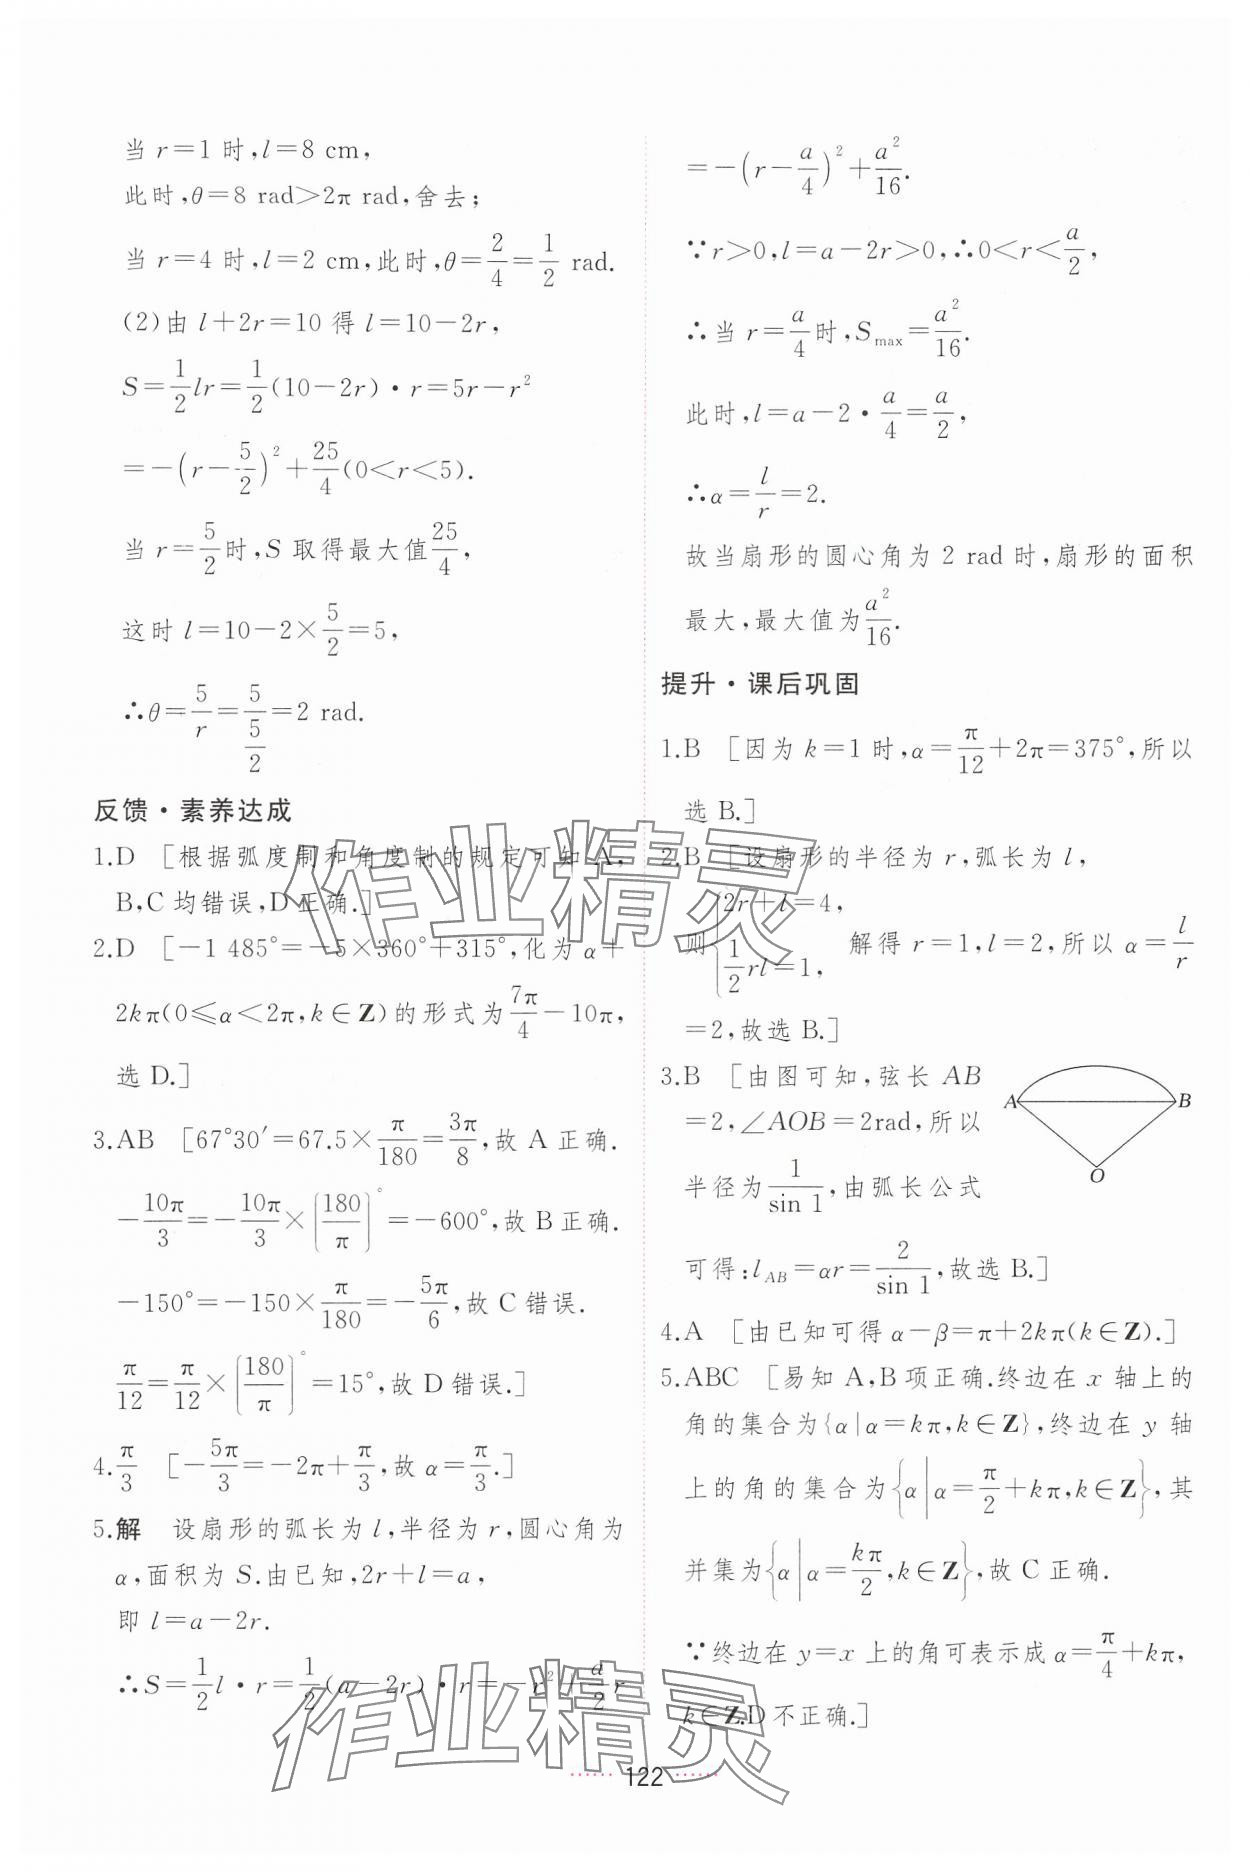 当 r=1 时,l=8 cm,
此时,θ=8 rad>2π rad,舍去;
当 r=4 时,l=2 cm,此时,θ=2/4=1/2 rad.
(2)由 l+2r=10 得 l=10-2r,
S=1/2lr=1/2(10-2r)·r=5r-r²
=-(r-5/2)²+25/4(0<r<5).
当 r=5/2时,S 取得最大值25/4,
这时 l=10-2×5/2=5,
∴θ=5/r=5/(5/2)=2 rad.
反馈·素养达成
1.D [根据弧度制和角度制的规定可知 A,
B,C 均错误,D 正确.]
2.D [-1 485°=-5×360°+315°,化为 α+
2kπ(0≤α<2π,k∈Z)的形式为7π/4-10π,
选 D.]
3.AB [67°30′=67.5×π/180=3π/8,故 A 正确.
-10π/3=-10π/3×(180/π)°=-600°,故 B 正确.
-150°=-150×π/180=-5π/6,故 C 错误.
π/12=π/12×(180/π)°=15°,故 D 错误.]
4.π/3 [-5π/3=-2π+π/3,故 α=π/3.]
5.解 设扇形的弧长为 l,半径为 r,圆心角为
α,面积为 S.由已知,2r+l=a,
即 l=a-2r.
∴S=1/2l·r=1/2(a-2r)·r=-r²+a/2r
=-(r-a/4)²+a²/16.
∵r>0,l=a-2r>0,∴0<r<a/2,
∴当 r=a/4时,Smax=a²/16.
此时,l=a-2·a/4=a/2,
∴α=l/r=2.
故当扇形的圆心角为 2 rad 时,扇形的面积
最大,最大值为a²/16.
提升·课后巩固
1.B [因为 k=1 时,α=π/12+2π=375°,所以
选 B.]
2.B [设扇形的半径为 r,弧长为 l,
则{2r+l=4, 1/2rl=1, 解得 r=1,l=2,所以 α=l/r
=2,故选 B.]
3.B [由图可知,弦长 AB
=2,∠AOB=2rad,所以
半径为1/sin 1,由弧长公式
可得:lAB=αr=2/sin 1,故选 B.]
A
B
O
4.A [由已知可得 α-β=π+2kπ(k∈Z).]
5.ABC [易知 A,B 项正确.终边在 x 轴上的
角的集合为{α|α=kπ,k∈Z},终边在 y 轴
上的角的集合为{α|α=π/2+kπ,k∈Z},其
并集为{α|α=kπ/2,k∈Z},故 C 正确.
∵终边在 y=x 上的角可表示成 α=π/4+kπ,
k∈Z.D 不正确.]
作业精灵
作业精灵
122